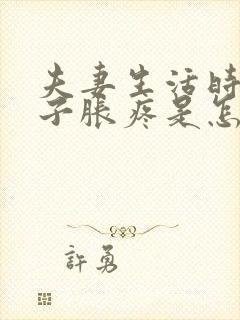 夫妻生活时
子胀疼是怎
許勇